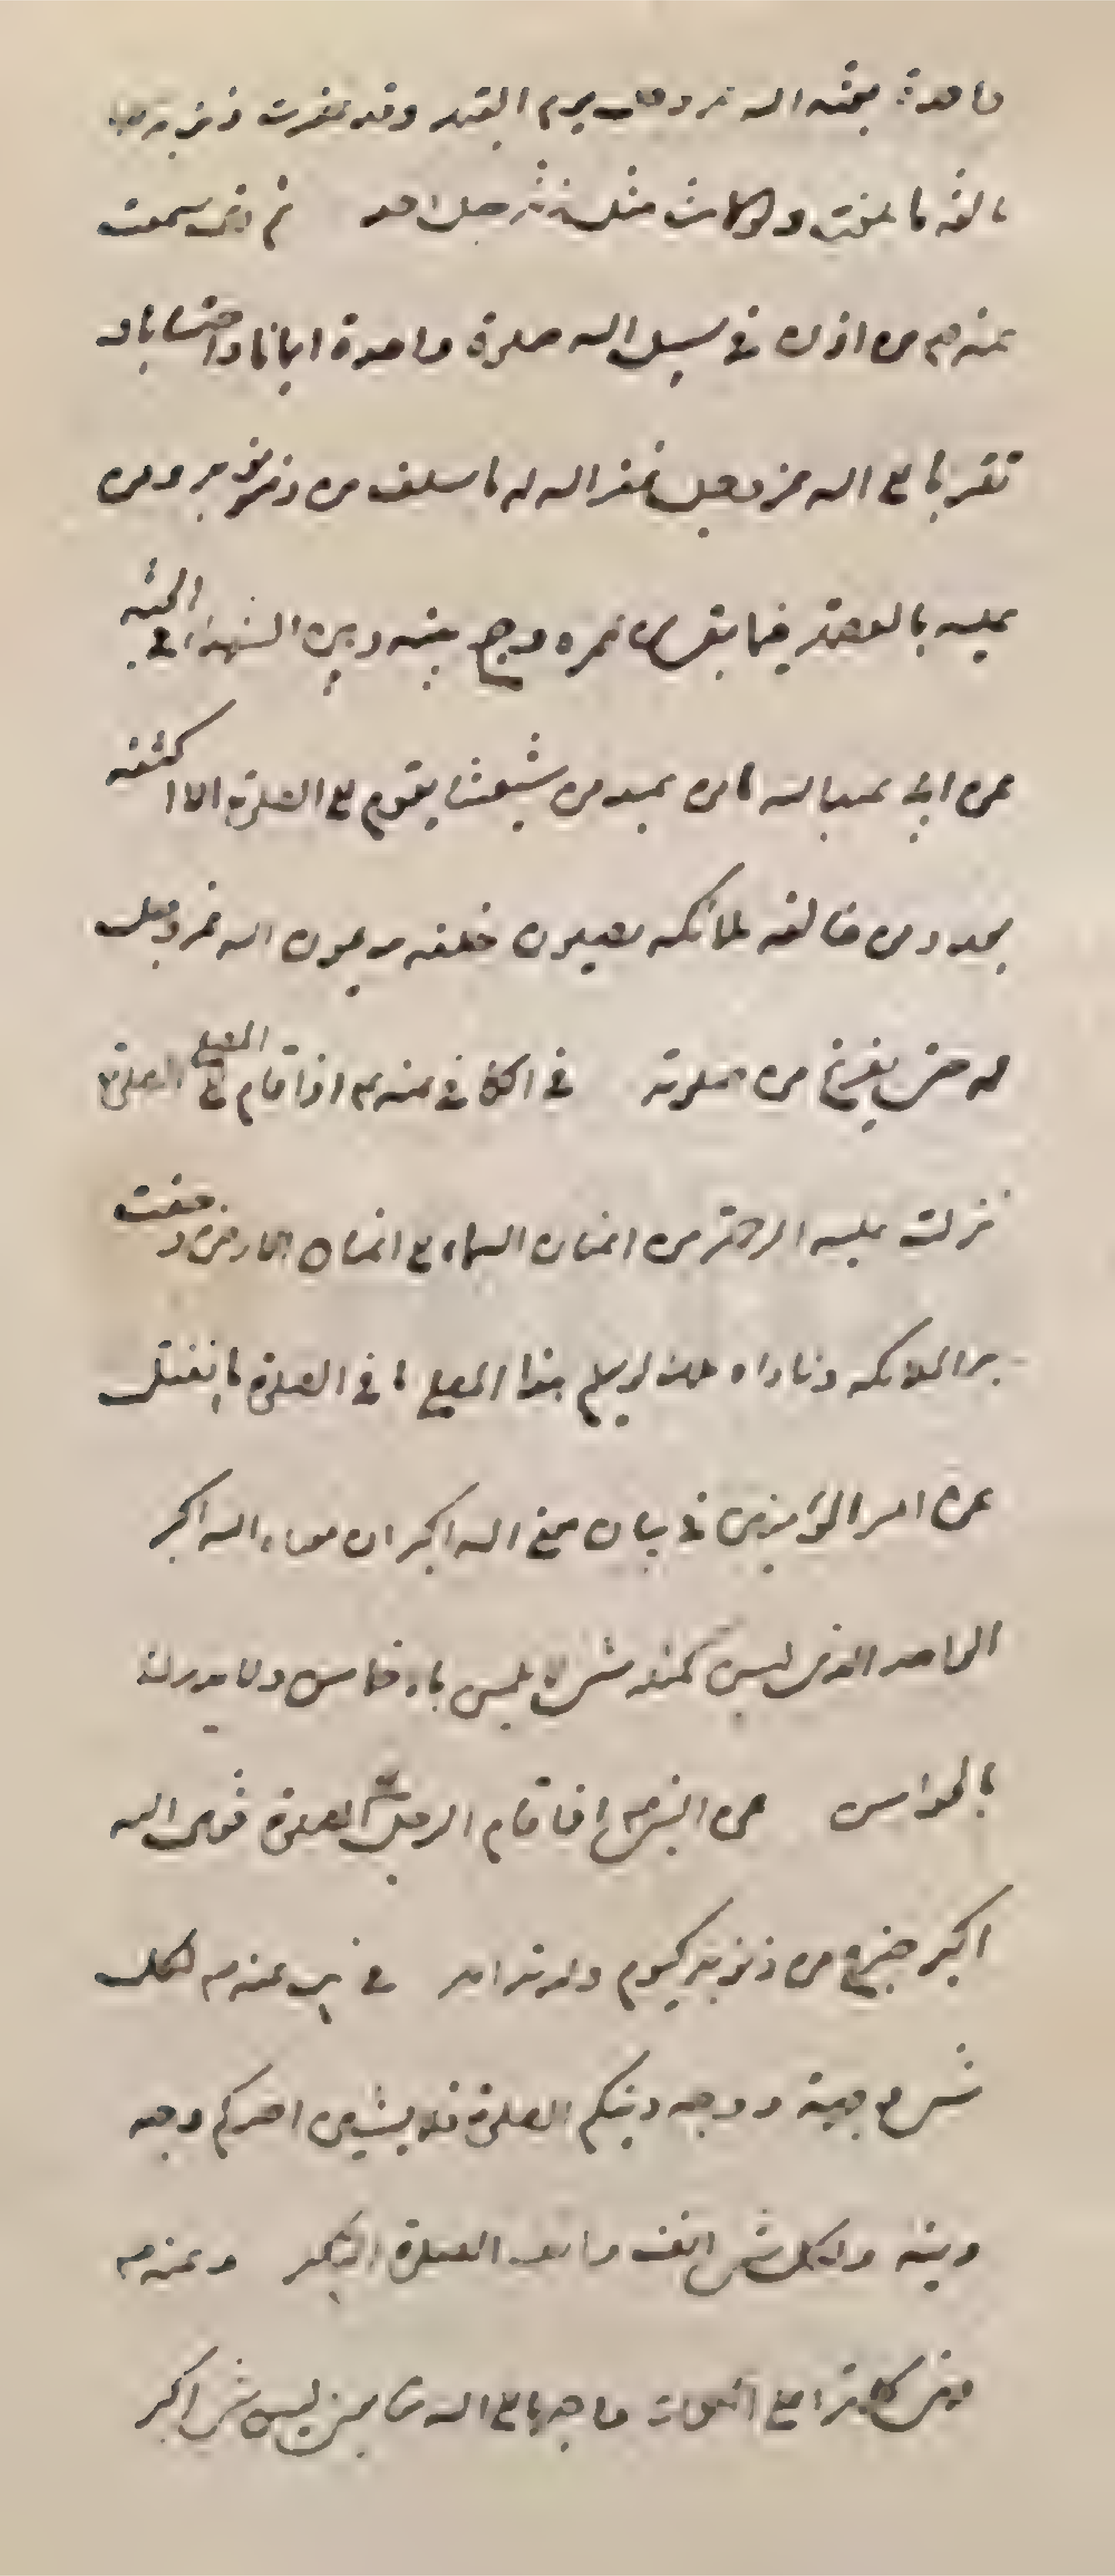 واحدة بعثه الله عز وجل يوم القيمة وقد غفرت ذنوبه
بالغة ما بلغت ولو كانت مثل جبل احد ثم سمعت
عنه ص من اذن في سبيل الله صلوة واحدة ايمانا واحتسابا و
تقربا الى الله عز وجل غفر الله له ما سلف من ذنوبه ومن
عليه بالعصمة فيما بقى من عمره وجمع بينه وبين الشهداء في الجنة
عن ابي عبدالله ما من عبد من شيعتنا يقوم الى الصلوة الا اكتنفه
بعدد من خالفه ملائكه يصلون خلفه يدعون الله عز وجل
له حتى يفرغ من صلوته في الكافي عنه ع اذا قام المصلي الى الصلوة
نزلت عليه الرحمة من اعنان السماء الى اعنان الارض وحفت
به الملائكه وناداه ملك لو يعلم هذا المصلي ما في الصلوة ما انفتل
عن امير المؤمنين في بيان معنى الله اكبر ان معناه الله اكبر
الواحد الذي ليس كمثله شئ لا يلمس بالاخماس ولا يدرك
بالحواس عن النبي ص اذا قام الرجل الى الصلوة فقال الله
اكبر خرج من ذنوبه كيوم ولدته امه في يب عنه ص لكل
شئ وجه ووجه دينكم الصلوة فلا يشينن احدكم وجه
دينه ولكل شئ انف وانف الصلوة التكبير وعنه ص
الله بمن ليس شئ اكبر